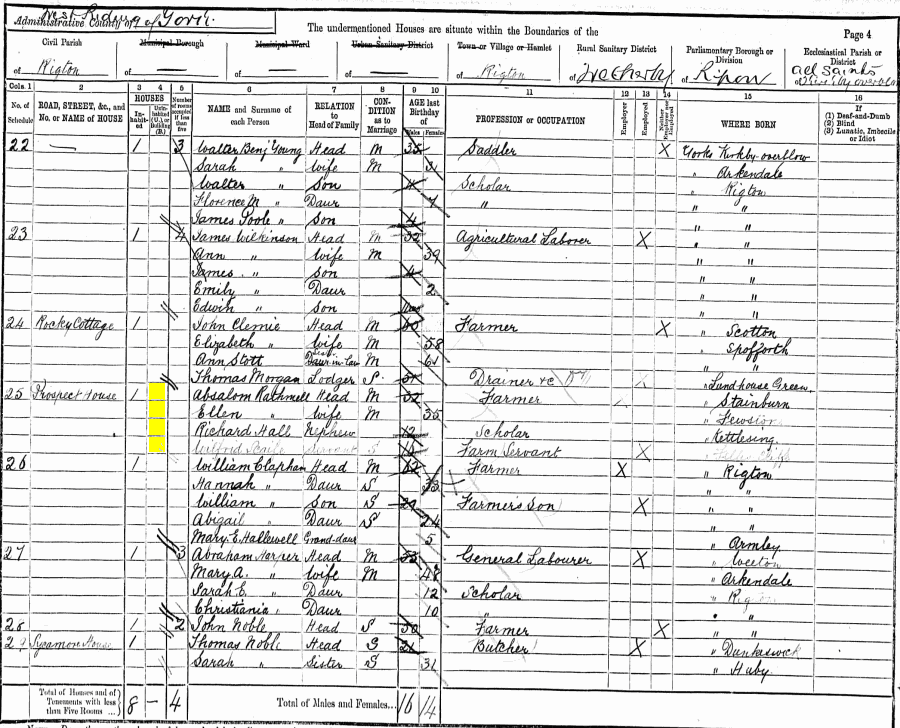 West Riding of York
Administrative County of
The undermentioned Houses are situate within the Boundaries of the
Page 4
Civil Parish
of Rigton
Municipal Borough
of —
Municipal Ward
of —
Urban Sanitary District
of —
Town or Village or Hamlet
of Rigton
Rural Sanitary District
of Wetherby
Parliamentary Borough or Division
of Ripon
Ecclesiastical Parish or District
of All Saints
Cols. 1 2 3 4 5 6 7 8 9 10 11 12 13 14 15 16
No. of Schedule
ROAD, STREET, &c., and No. or NAME of HOUSE
HOUSES
In-habit-ed
Uninhabited (U.), or Building (B.)
Number of rooms occupied if less than five
NAME and Surname of each Person
RELATION to Head of Family
CON-DITION as to Marriage
AGE last Birthday of
Males Females
PROFESSION or OCCUPATION
Employer
Employed
Neither Employer nor Employed
WHERE BORN
If
(1) Deaf-and-Dumb
(2) Blind
(3) Lunatic, Imbecile or Idiot
22 — 1 3 Walter Benj Young Head M 35 Saddler X Yorks Kirkby overflow
Sarah " Wife M " Arkendale
Walter " Son Scholar " Rigton
Florence M " Daur 7 " " "
James Poole " Son 4 " "
23 1 4 James Wilkinson Head M 32 Agricultural Laborer X " "
Ann " Wife M 39 " "
James " Son " "
Emily " Daur 2 " "
Edwin " Son " "
24 Rocky Cottage 1 John Clemie Head M 60 Farmer X " Scotton
Elizabeth " Wife M 58 " Spofforth
Ann Stott Daur-in-law M 61 " "
Thomas Morgan Lodger S Drainer &c X " Lundhouse Green
25 Prospect House 1 Absalom Rathmell Head M 32 Farmer " Stainburn
Ellen " Wife M 35 " Fewston
Richard Hall Nephew 12 Scholar " Kettlesing
Wilfrid Servant S Farm Servant X
26 1 William Clapham Head M 62 Farmer X " Rigton
Hannah " Daur S 33 " "
William " Son S 29 Farmers Son X " "
Abigail " Daur S 24 " "
Mary E Hallewell Grand-daur 5 " Armley
27 1 3 Abraham Harper Head M 53 General Labourer X " Weeton
Mary A. " Wife M 48 " Arkendale
Sarah E. " Daur 12 Scholar " Rigton
Christiania " Daur 10 " " "
28 1 2 John Noble Head S 30 Farmer X " "
29 Sycamore House 1 Thomas Noble Head S 21 Butcher X " Dunkeswick
Sarah " Sister S 31 " Huby
Total of Houses and of Tenements with less than Five Rooms ... 8 — 4
Total of Males and Females... 16 14